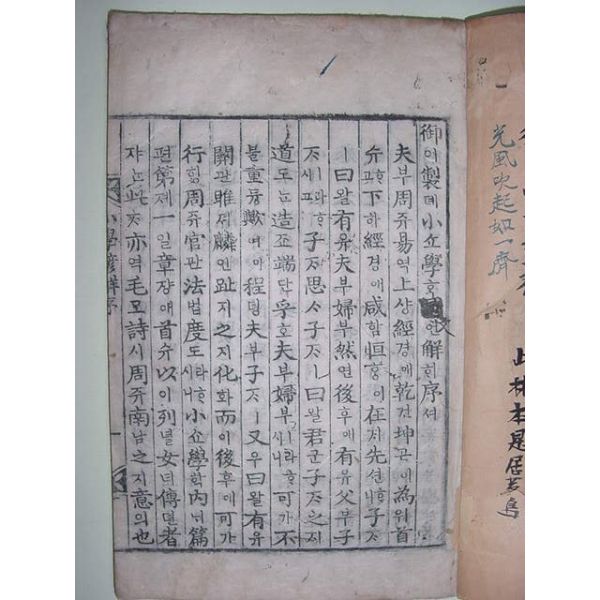 御어製졔小쇼學ᄒᆞᆨ언解ᄒᆡ序셔
夫부周쥬易역上샹經경애乾건坤곤이爲위首
슈ᄒᆞ고下하經경애咸함恒ᄒᆞᆼ이在ᄌᆡ先션ᄒᆞ니子ᄌᆞ
ㅣ曰왈有유夫부婦부然연後후에有유父부子
ᄌᆞㅣ라ᄒᆞ시고子ᄌᆞ思ᄉᆞ子ᄌᆞㅣ曰왈君군子ᄌᆞ之지
道도ᄂᆞᆫ造조端단乎호夫부婦부ㅣ라ᄒᆞ시니可가不
블重듕歟여아程뎡夫부子ᄌᆞㅣ又우曰왈有유
關관雎져麟인趾지之지化화而이後후에可가
行ᄒᆡᆼ周쥬官관法법度도ㅣ라ᄒᆞ시니小쇼學ᄒᆞᆨ內ᄂᆡ篇
편第뎨一일章쟝애首슈以이列녈女녀傳뎐者
쟈ᄂᆞᆫ此ᄎᆞ亦역毛모詩시周쥬南남之지意의也
小學諺解序
光風吹起如一齊